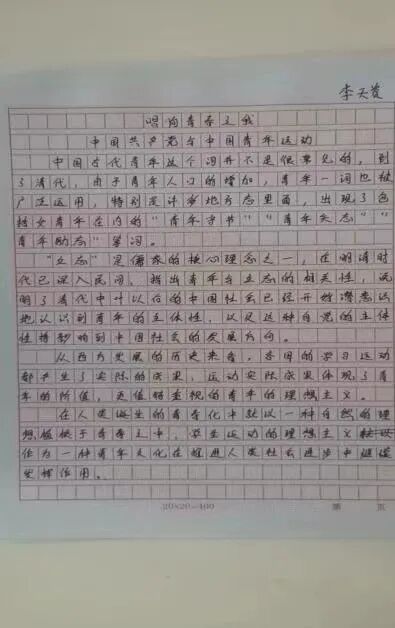 李天
唱响青春之我
中国共产党与中国青年运动
中国古代青年这个词并不是很常见的，到
了清代，由于青年人口的增加，青年一词也被
广泛运用，特别是许多地方志里面，出现了包
括女青年在内的“青年守节”“青年矢志”“
青年励志”等词。
“立志”是儒家的核心理念之一，在明清时
代已深入民间，指出青年与立志的相关性，说
明了清代中叶以后的中国社会已经开始潜意识
地认识到青年的主体性，以及这种自觉的主体
性将影响到中国社会的发展方向。
从西方发展的历史来看，各国的学习运动
都产生了实际的成果，运动实际成果体现了青
年的价值，更值得重视的青年的理想主义。
在人类诞生的青春化中就以一种自然的理
想植根于青春之中，学生运动的理想主义
作为一种青年文化在促进人类社会进步中继续
发挥作用。
20×20=400
第 页